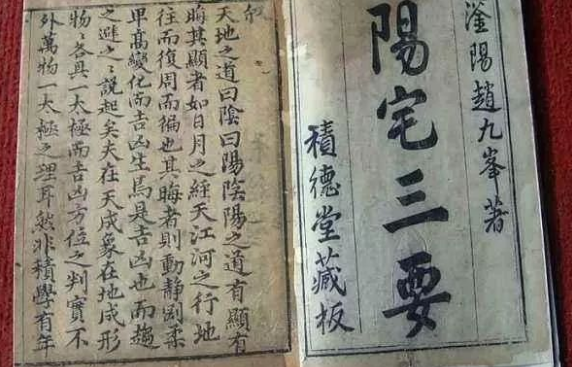 滏陽趙九峯著
陽宅三要
積德堂藏板
叙
天地之道曰陰曰陽陰陽之道有顯有
晦其顯者如日月之經天江河之行地
往而復周而徧也其晦者則動靜剛柔
卑高變化而吉凶生焉是吉凶也而趨
之避之〻說起矣夫在天成象在地成形
物〻各具一太極而吉凶方位之判實不
外萬物一太極之理耳然非積學有年